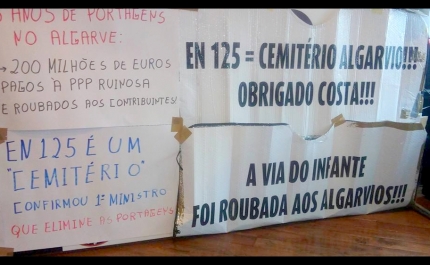 ANOS DE PORTAGENS
NO ALGARVE:
→ 200 MILHÕES DE EUROS
PAGOS À PPP RUINOSA
E ROUBADOS AOS CONTRIBUINTES!
EN125 É UM
"CEMITÉRIO"
CONFIRMOU 1º MINISTRO
QUE ELIMINE AS PORTAGENS
EN 125 = CEMITÉRIO ALGARVIO!!!
OBRIGADO COSTA!!!
A VIA DO INFANTE
FOI ROUBADA AOS ALGARVIOS!!!